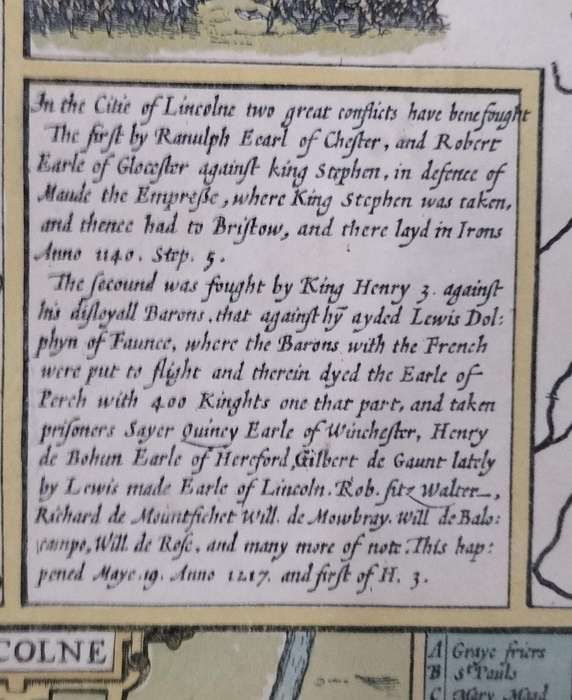 In the Citie of Lincolne two great conflicts have bene fought
The first by Ranulph Eearl of Chester, and Robert
Earle of Glocester against king Stephen, in defence of
Maude the Empresse, where King Stephen was taken,
and thence had to Bristow, and there layd in Irons
Anno 1140. Step. 5.
The secound was fought by King Henry 3. against
his disloyall Barons, that against hỹ ayded Lewis Dol:
phyn of Faunce, where the Barons with the French
were put to flight and therein dyed the Earle of
Perch with 400 Kinghts one that part, and taken
prisoners Sayer Quincy Earle of Winchester, Henry
de Bohun Earle of Hereford, Gilbert de Gaunt lately
by Lewis made Earle of Lincoln. Rob. fitz Walter,
Richard de Mountfichet Will. de Mowbray. Will de Balo:
campo, Will. de Rose, and many more of note. This hap:
pened Maye. 19. Anno 1217. and first of H. 3.
COLNE
A Graye friers
B St Pauls
C